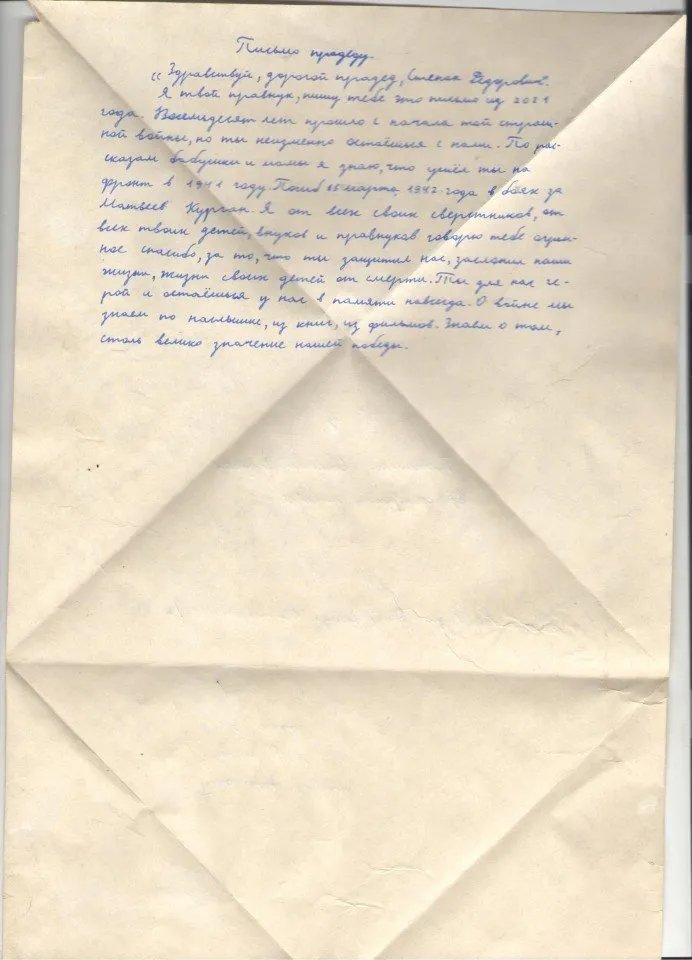 Письмо прадеду.
„Здравствуй, дорогой прадед, Степан Фёдорович".
Я твой правнук, пишу тебе это письмо из 2021
года. Восемьдесят лет прошло с начала той страш-
ной войны, но ты неизменно остаёшься с нами. По рас-
сказам бабушки и мамы я знаю, что ушёл ты на
фронт в 1941 году. Погиб марта 1942 года в боях за
Матвеев Курган. Я от всех своих сверстников, от
всех твоих детей, внуков и правнуков говорю тебе огром-
ное спасибо, за то, что ты защитил нас, заслонил наши
жизни, жизни своих детей от смерти. Ты для нас ге-
рой и остаёшься у нас в памяти навсегда. О войне мы
знаем по наслышке, из книг, из фильмов. Знаем о том,
столь велико значение нашей победы.